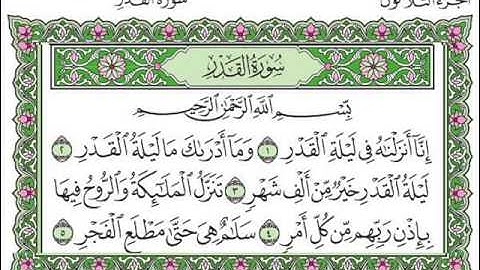 الجزء الثلاثون
سورة القدر
سُورَةُ القَدْرِ
بِسْمِ اللَّهِ الرَّحْمَٰنِ الرَّحِيمِ
إِنَّا أَنزَلْنَاهُ فِي لَيْلَةِ الْقَدْرِ ١ وَمَا أَدْرَاكَ مَا لَيْلَةُ الْقَدْرِ ٢
لَيْلَةُ الْقَدْرِ خَيْرٌ مِّنْ أَلْفِ شَهْرٍ ٣ تَنَزَّلُ الْمَلَائِكَةُ وَالرُّوحُ فِيهَا
بِإِذْنِ رَبِّهِم مِّن كُلِّ أَمْرٍ ٤ سَلَامٌ هِيَ حَتَّىٰ مَطْلَعِ الْفَجْرِ ٥